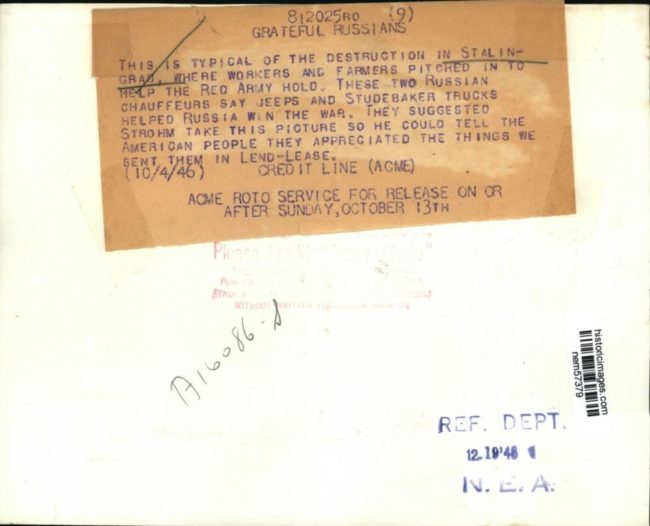 812025RO (9)
GRATEFUL RUSSIANS
THIS IS TYPICAL OF THE DESTRUCTION IN STALIN-
GRAD, WHERE WORKERS AND FARMERS PITCHED IN TO
HELP THE RED ARMY HOLD. THESE TWO RUSSIAN
CHAUFFEURS SAY JEEPS AND STUDEBAKER TRUCKS
HELPED RUSSIA WIN THE WAR. THEY SUGGESTED
STROHM TAKE THIS PICTURE SO HE COULD TELL THE
AMERICAN PEOPLE THEY APPRECIATED THE THINGS WE
SENT THEM IN LEND-LEASE.
(10/4/46) CREDIT LINE (ACME)
ACME ROTO SERVICE FOR RELEASE ON OR
AFTER SUNDAY, OCTOBER 13TH
Photo"
WITHOUT WRITTEN
A16086-S
historicimages.com
nem57379
REF. DEPT.
12.19'46
N. E. A.